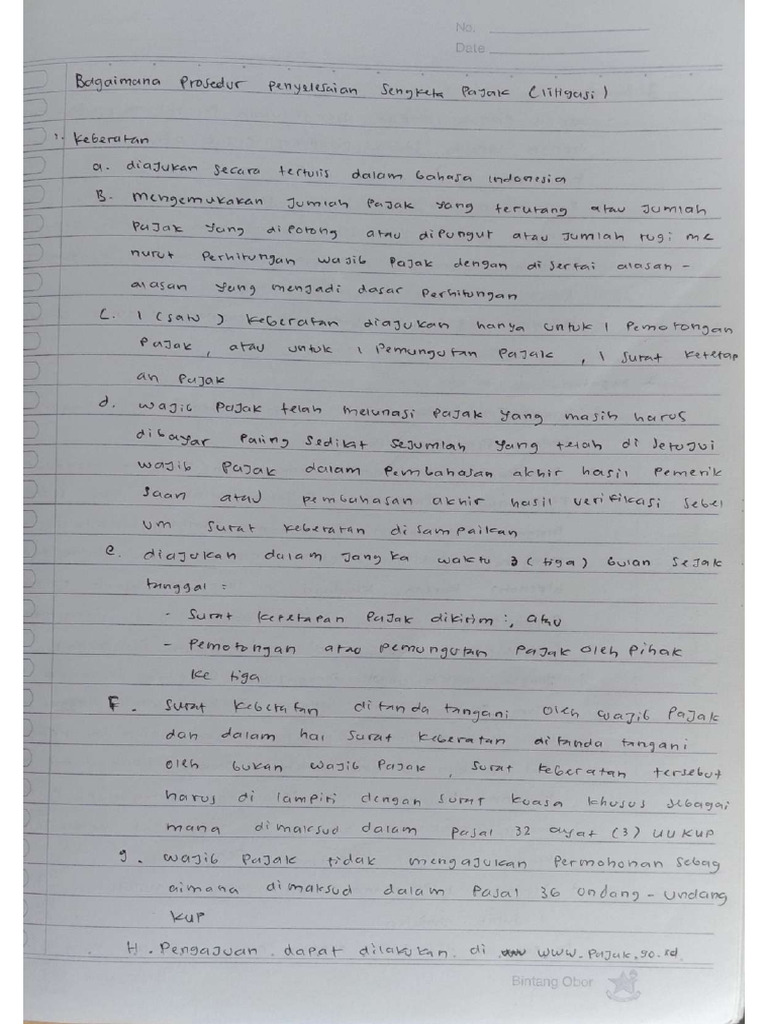 No.
Date
Bagaimana Prosedur Penyelesaian Sengketa Pajak (litigasi)
1. Keberatan
a. diajukan secara tertulis dalam bahasa indonesia
B. mengemukakan jumlah pajak yang terutang atau jumlah
pajak yang dipotong atau dipungut atau jumlah rugi me
nurut perhitungan wajib pajak dengan di sertai alasan -
alasan yang menjadi dasar perhitungan
C. 1 (satu) keberatan diajukan hanya untuk 1 Pemotongan
Pajak, atau untuk 1 Pemungutan Pajak, 1 surat ketetap
an pajak
d. wajib pajak telah melunasi pajak yang masih harus
dibayar Paling sedikat sejumlah yang telah di setujui
wajib pajak dalam pembahasan akhir hasil pemerik
saan atau pembahasan akhir hasil verifikasi sebel
um surat keberatan disampaikan
e. diajukan dalam jangka waktu 3 (tiga) bulan sejak
tanggal :
- Surat ketetapan pajak dikirim :, atau
- Pemotongan atau pemungutan pajak oleh pihak
ke tiga
F. Surat keberatan ditanda tangani oleh wajib pajak
dan dalam hal surat keberatan ditanda tangani
oleh bukan wajib pajak, surat keberatan tersebut
harus di lampiri dengan surat kuasa khusus sebagai
mana dimaksud dalam pasal 32 ayat (3) UU KUP
g. wajib pajak tidak mengajukan permohonan sebag
aimana dimaksud dalam Pasal 36 undang - undang
KUP
H. Pengajuan dapat dilakukan di www.pajak.go.id
Bintang Obor